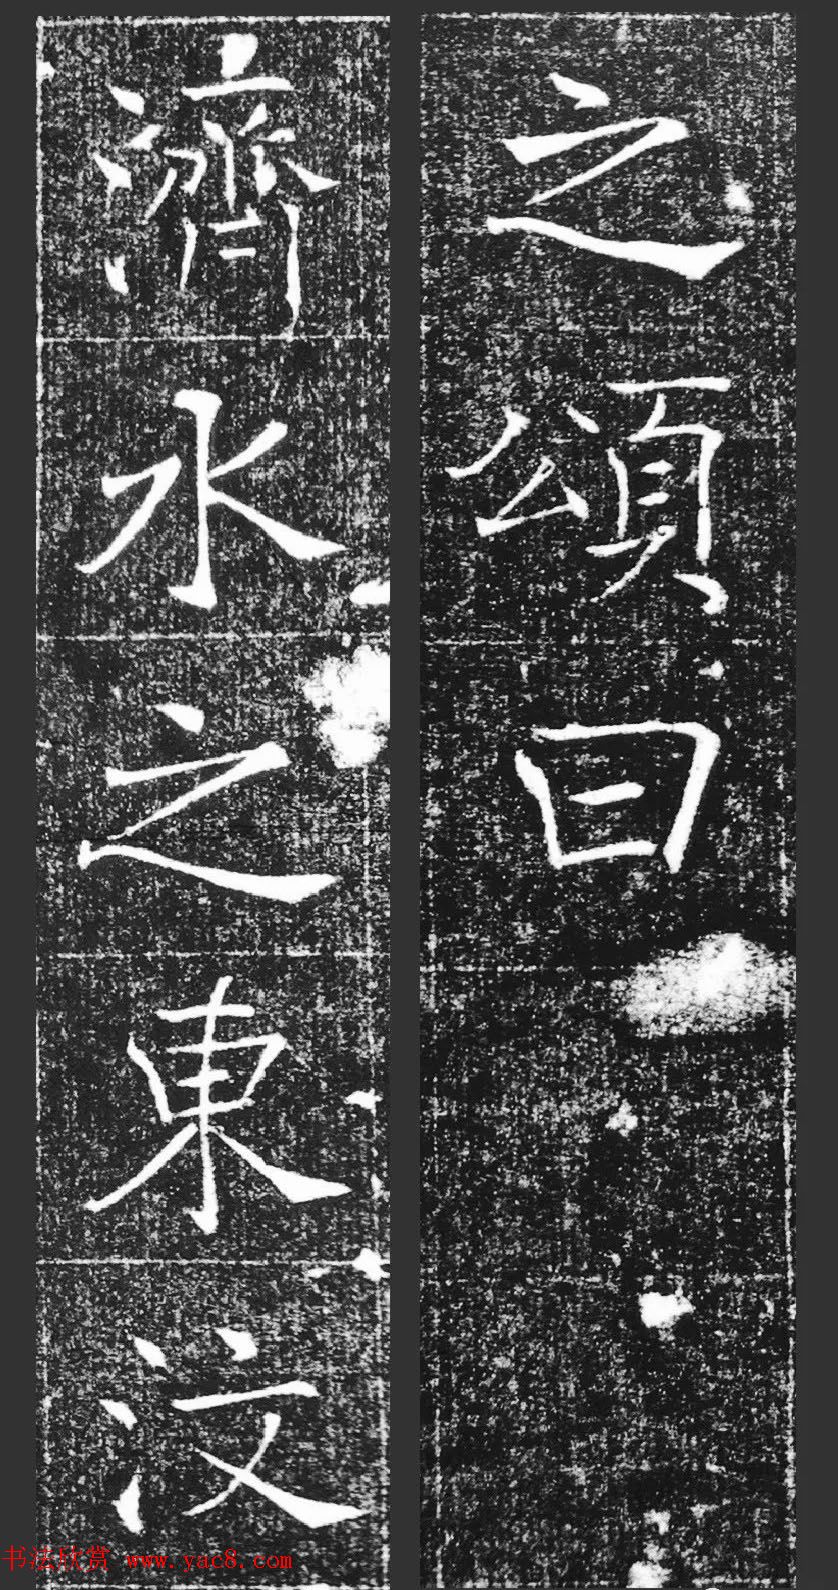 之頌曰
濟水之東汶
书法欣赏 www.yac8.com